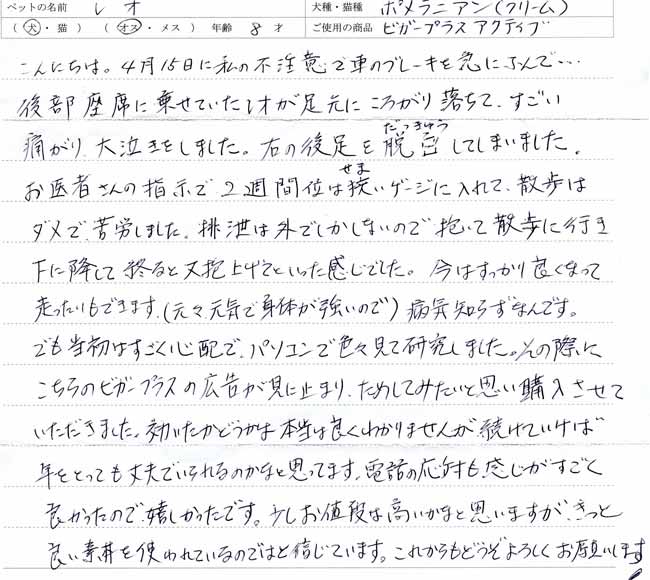 ペットの名前 レオ 犬種・猫種 ポメラニアン(クリーム)
(犬・猫) (オス・メス) 年齢 8 才 ご使用の商品 ビガープラス アクティブ
こんにちは。4月15日に私の不注意で車のブレーキを急にふんで…
後部座席に乗せていたレオが足元にころがり落ちて、すごい
痛がり、大泣きをしました。右の後足を脱臼(だっきゅう)してしまいました。
お医者さんの指示で2週間位は狭(せま)いゲージに入れて、散歩は
ダメで、苦労しました。排泄は外でしかしないので抱いて散歩に行き
下に降して終ると又抱上げてといった感じでした。今はすっかり良くなって
走ったりもできます。(元々元気で身体が強いので)病気知らずなんです。
でも当初はすごく心配で、パソコンで色々見て研究しました。その際に
こちらのビガープラスの広告が見に止まり、ためしてみたいと思い購入させて
いただきました。効いたかどうかは本当は良くわかりませんが続けていけば
年をとっても丈夫でいられるのかなと思ってます。電話の応対も感じがすごく
良かったので、嬉しかったです。少しお値段は高いかなと思いますが、きっと
良い素材を使われているのではと信じています。これからもどうぞよろしくお願いします。